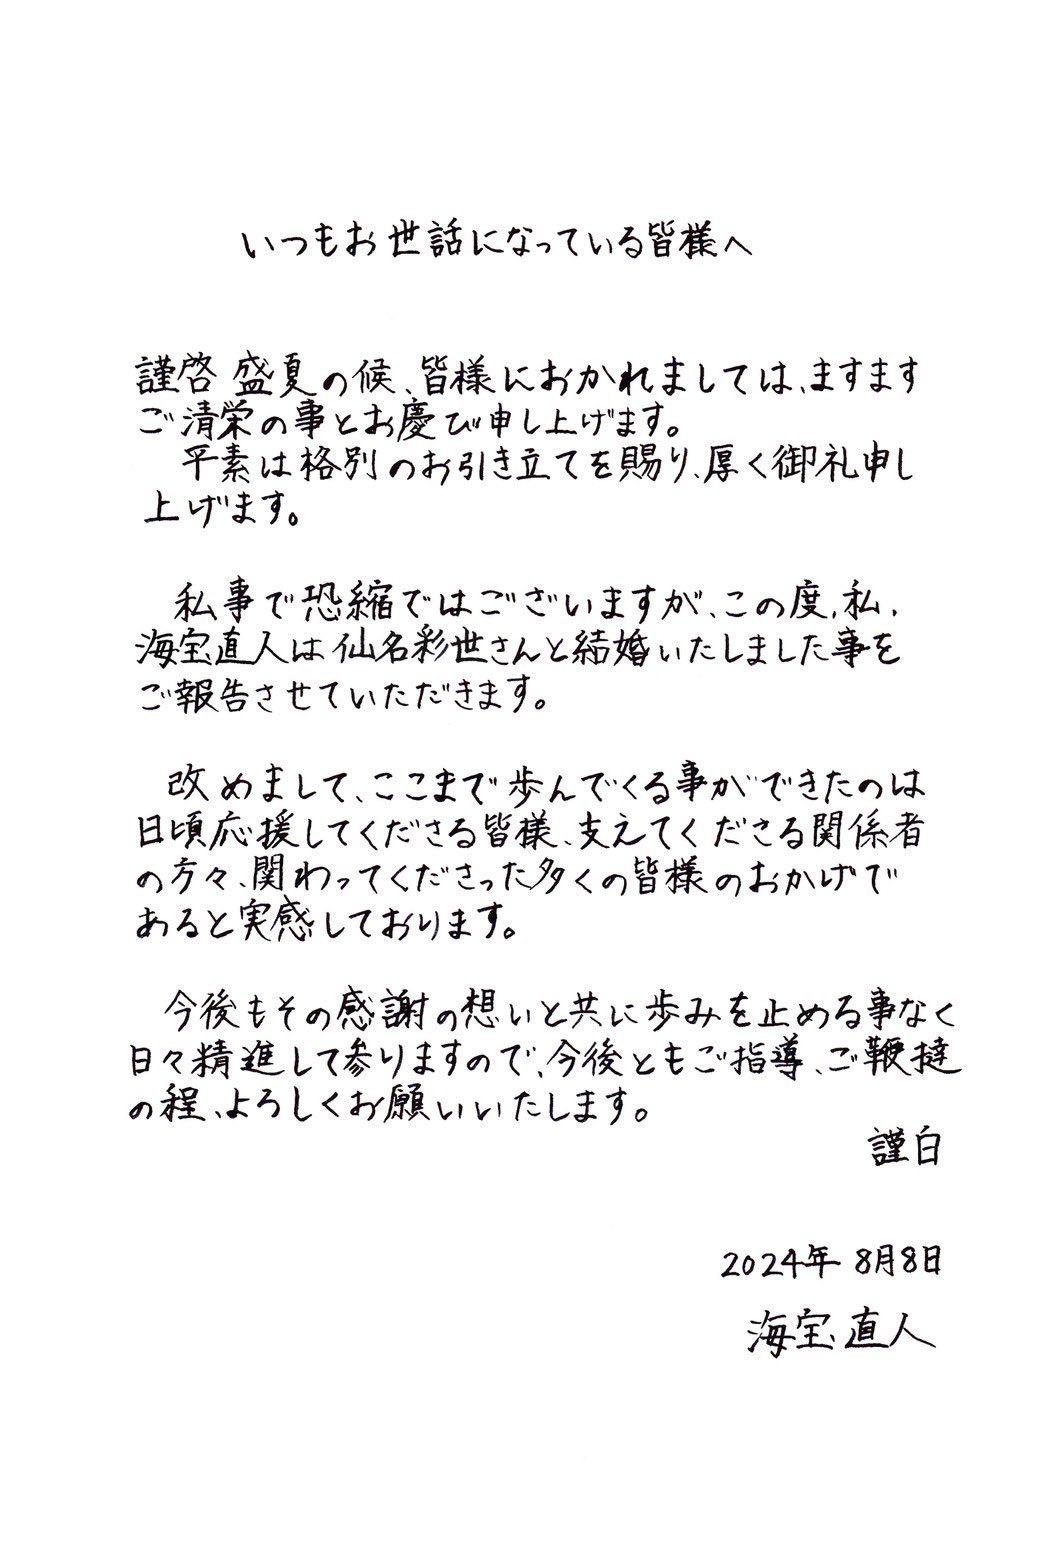 いつもお世話になっている皆様へ
謹啓 盛夏の候、皆様におかれましては、ますます
ご清栄の事とお慶び申し上げます。
平素は格別のお引き立てを賜り、厚く御礼申し
上げます。
私事で恐縮ではございますが、この度、私、
海宝直人は仙名彩世さんと結婚いたしました事を
ご報告させていただきます。
改めまして、ここまで歩んでくる事ができたのは
日頃応援してくださる皆様、支えてくださる関係者
の方々、関わってくださった多くの皆様のおかげで
あると実感しております。
今後もその感謝の想いと共に歩みを止める事なく
日々精進して参りますので、今後ともご指導、ご鞭撻
の程、よろしくお願いいたします。
謹白
2024年 8月8日
海宝直人